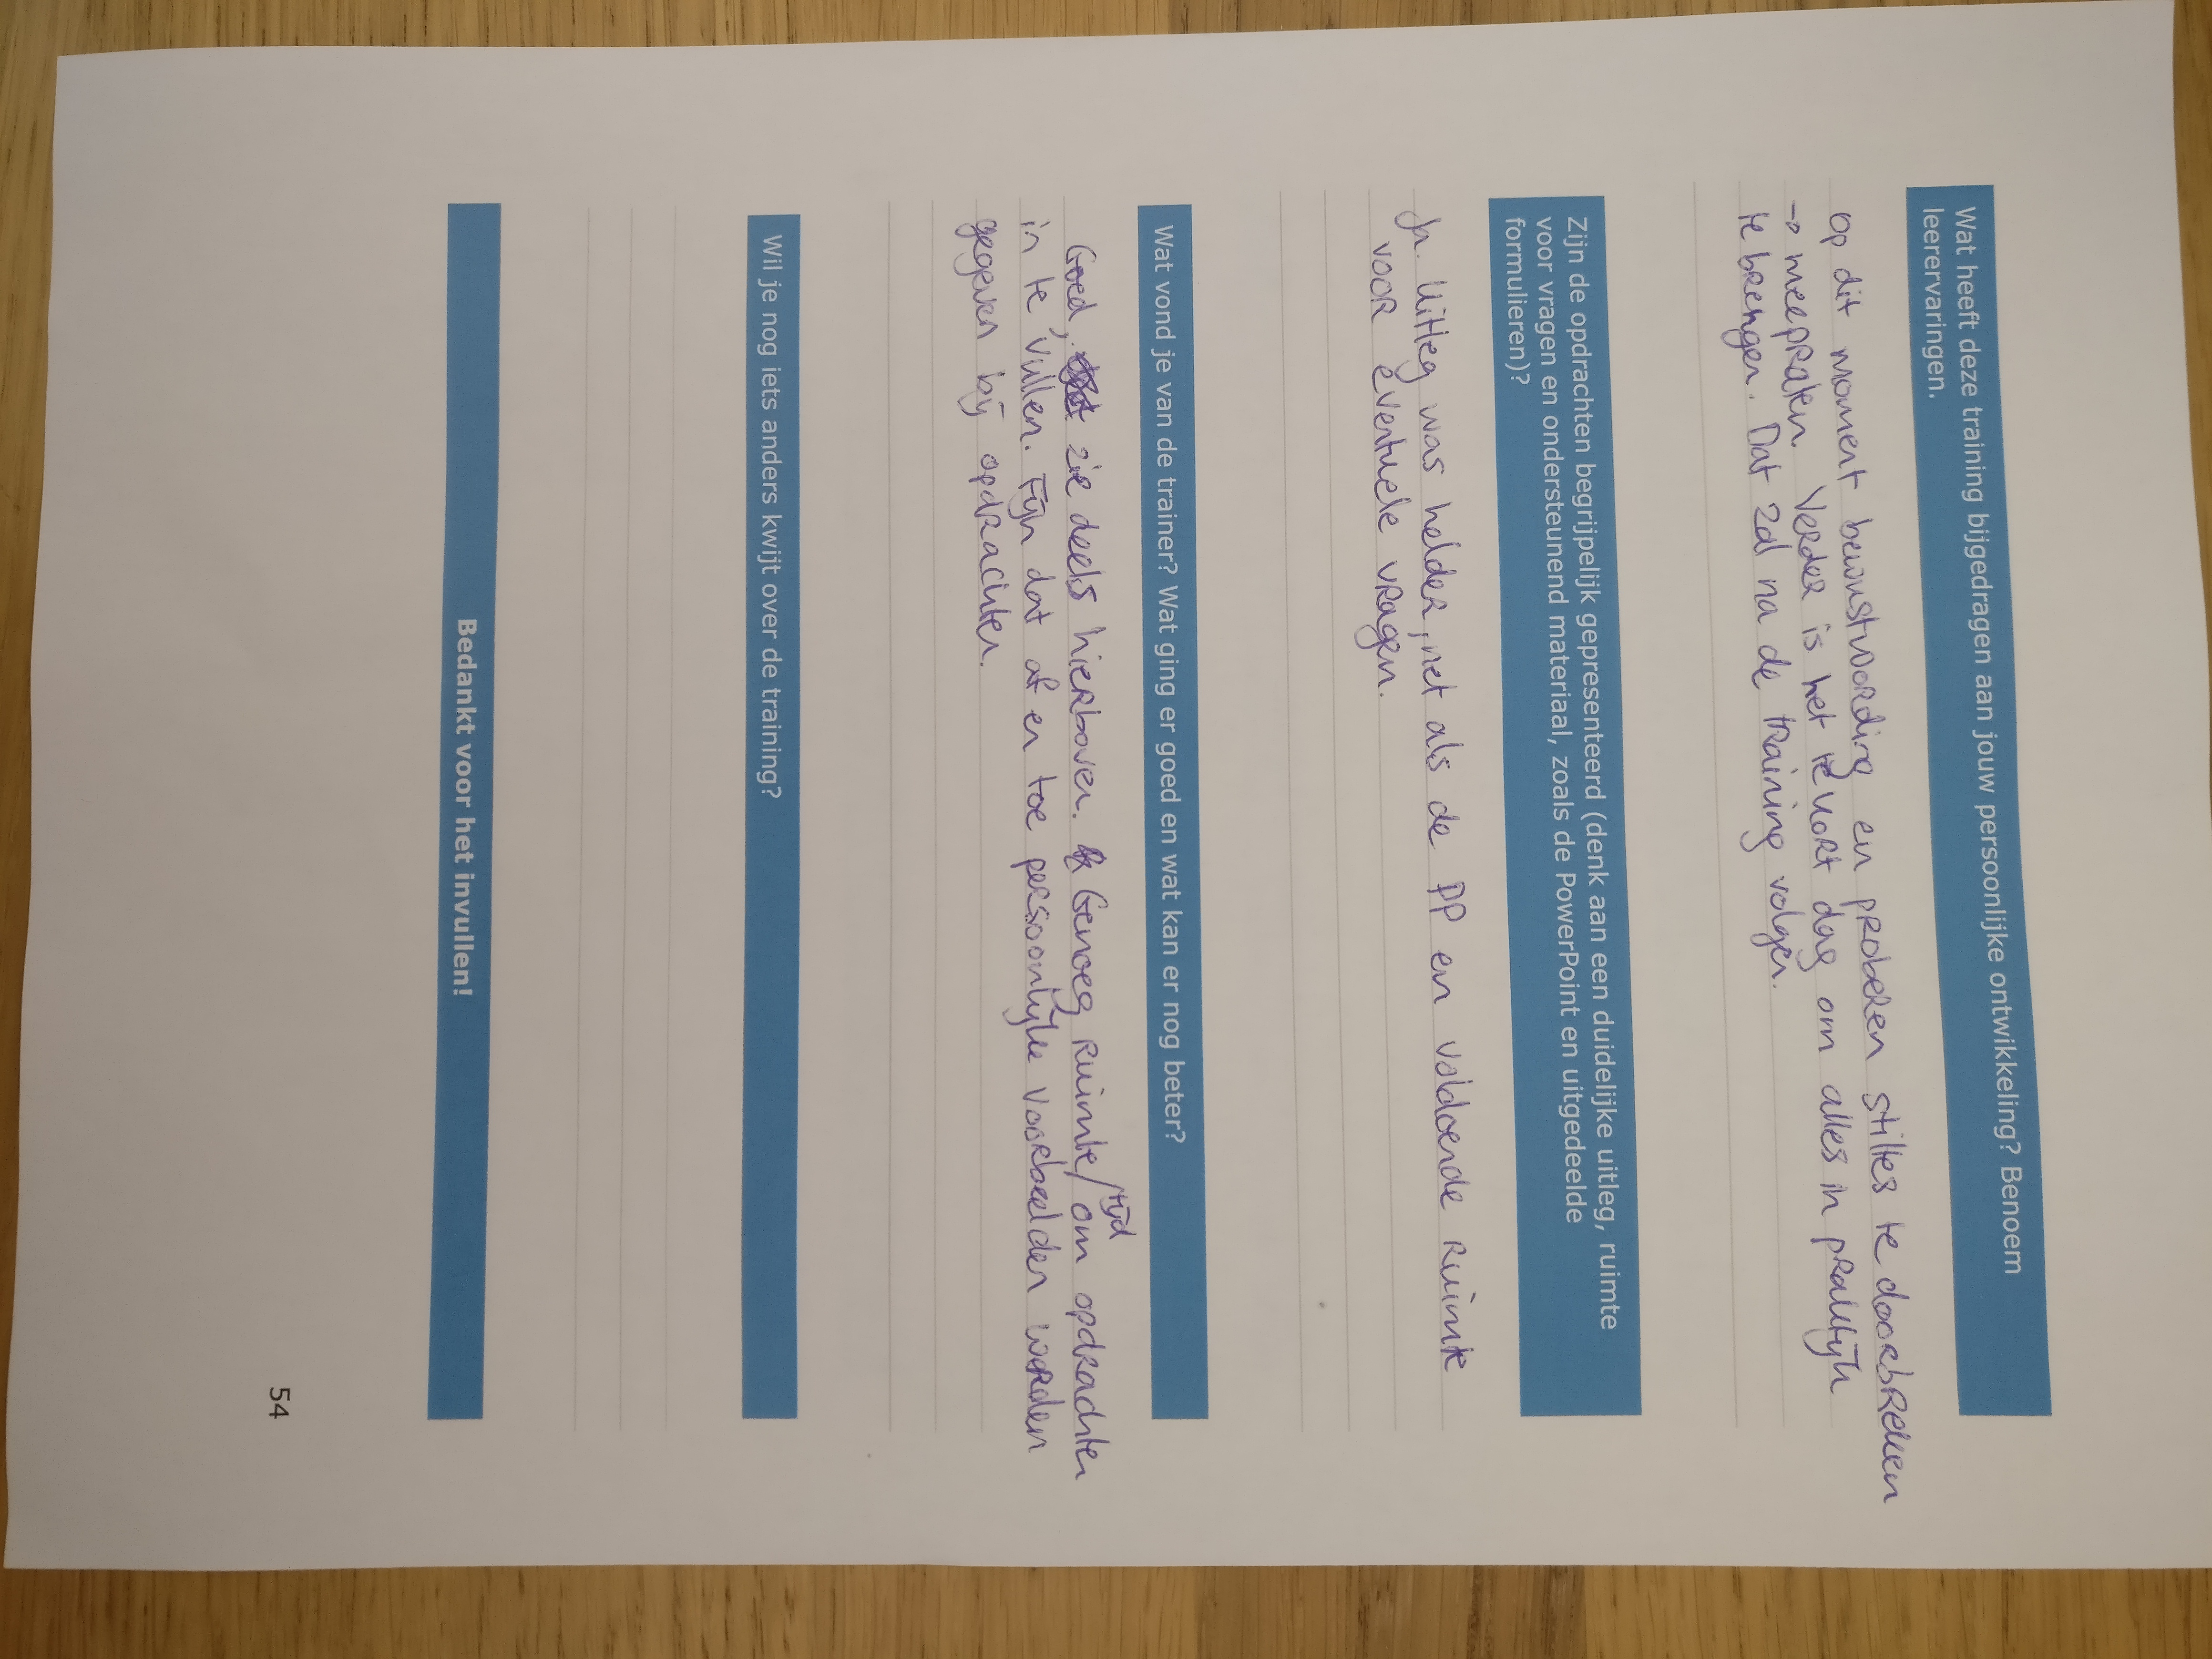 Wat heeft deze training bijgedragen aan jouw persoonlijke ontwikkeling? Benoem
leerervaringen.
op dit moment bewustwording en proberen stiltes te doorbreken
→ meepraten. Verder is het te kort dag om alles in praktijk
te brengen. Dat zal na de training volgen.
Zijn de opdrachten begrijpelijk gepresenteerd (denk aan een duidelijke uitleg, ruimte
voor vragen en ondersteunend materiaal, zoals de PowerPoint en uitgedeelde
formulieren)?
Ja. Uitleg was helder, net als de PP en voldoende ruimte
voor eventuele vragen.
Wat vond je van de trainer? Wat ging er goed en wat kan er nog beter?
Goed, zie deels hierboven. Genoeg ruimte/tijd om opdrachten
in te vullen. Fijn dat af en toe persoonlijke voorbeelden worden
gegeven bij opdrachten.
Wil je nog iets anders kwijt over de training?
Bedankt voor het invullen!
54